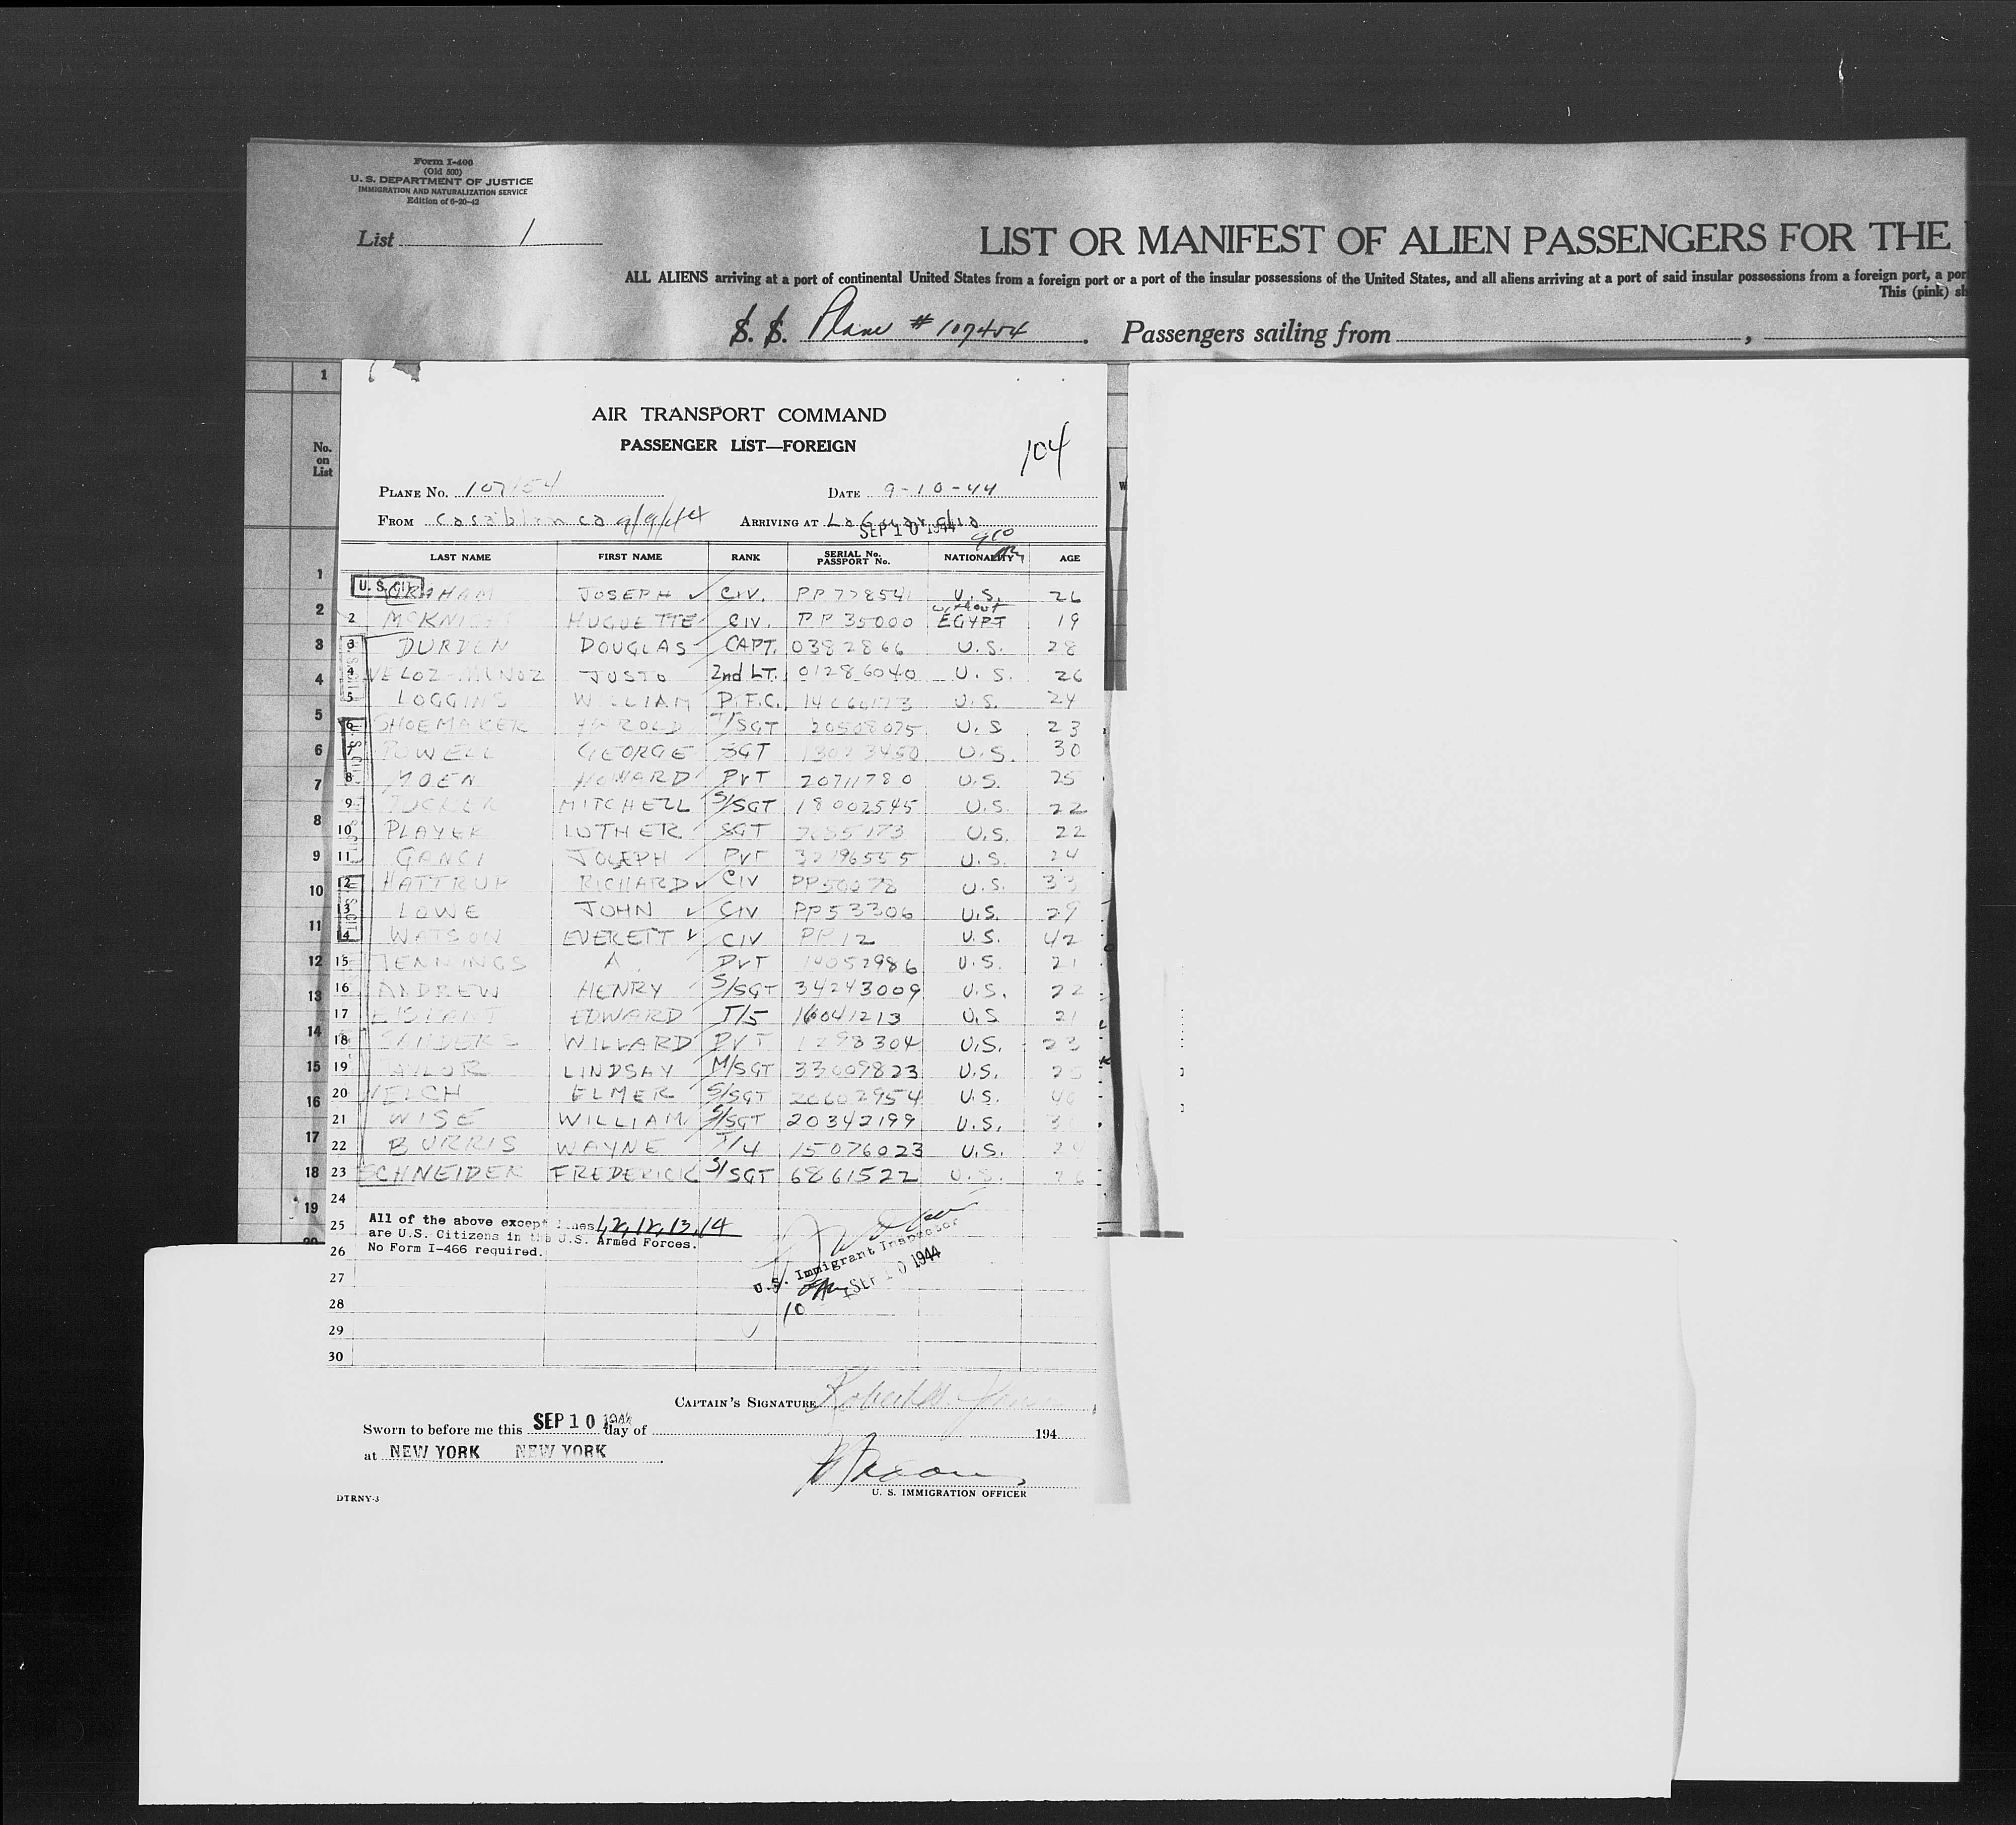 Form I-466
(Old 500)
U. S. DEPARTMENT OF JUSTICE
IMMIGRATION AND NATURALIZATION SERVICE
Edition of 6-20-42
List 1
LIST OR MANIFEST OF ALIEN PASSENGERS FOR THE
ALL ALIENS arriving at a port of continental United States from a foreign port or a port of the insular possessions of the United States, and all aliens arriving at a port of said insular possessions from a foreign port, a por
This (pink) sh
S. S. Plane # 107454. Passengers sailing from ,
1
No. on List
AIR TRANSPORT COMMAND
PASSENGER LIST—FOREIGN
104
PLANE NO. 107454 DATE 9-10-44
FROM Casablanca 9/9/44 ARRIVING AT LaGuardia
SEP 10 1944
LAST NAME FIRST NAME RANK SERIAL No. PASSPORT No. NATIONALITY AGE
U. S. CIT.
GRAHAM JOSEPH CIV. PP778541 U.S. 26
without
2 MCKNIGHT HUGUETTE CIV. PP 35000 EGYPT 19
3 DURDEN DOUGLAS CAPT. 0382866 U.S. 28
4 VELOZ-MUNOZ JUSTO 2nd LT. 01286040 U.S. 26
5 LOGGINS WILLIAM P.F.C. U.S. 24
6 SHOEMAKER HAROLD T/SGT 20508075 U.S 23
7 POWELL GEORGE SGT 13023450 U.S. 30
8 MOEN HOWARD PVT 20711780 U.S. 25
9 TUCKER MITCHELL S/SGT 18002545 U.S. 22
10 PLAYER LUTHER SGT U.S. 22
11 GANCI JOSEPH PVT 32196555 U.S. 24
12 HATTRUP RICHARD CIV PP50078 U.S. 33
13 LOWE JOHN CIV PP53306 U.S. 29
14 WATSON EVERETT CIV PP 12 U.S. 42
15 JENNINGS A. PVT 14052986 U.S. 21
16 ANDREW HENRY S/SGT 34243009 U.S. 22
17 EDWARD T/5 16041213 U.S 21
18 SANDERS WILLARD PVT U.S. 23
19 TAYLOR LINDSAY M/SGT 33009823 U.S. 25
20 WELCH ELMER S/SGT 20602954 U.S.
21 WISE WILLIAM S/SGT 20342199 U.S.
22 BURRIS WAYNE T/4 15076023 U.S.
23 SCHNEIDER FREDERICK S/SGT 6861522 U.S. 26
24
25
26
27
28
29
30
All of the above except lines 1, 2, 12, 13, 14
are U.S. Citizens in the U.S. Armed Forces.
No Form I-466 required.
U.S. Immigrant Inspector
SEP 10 1944
10
CAPTAIN'S SIGNATURE
Sworn to before me this SEP 10 1944 day of 194
at NEW YORK NEW YORK
U. S. IMMIGRATION OFFICER
DTRNY-3
1
2
3
4
5
6
7
8
9
10
11
12
13
14
15
16
17
18
19